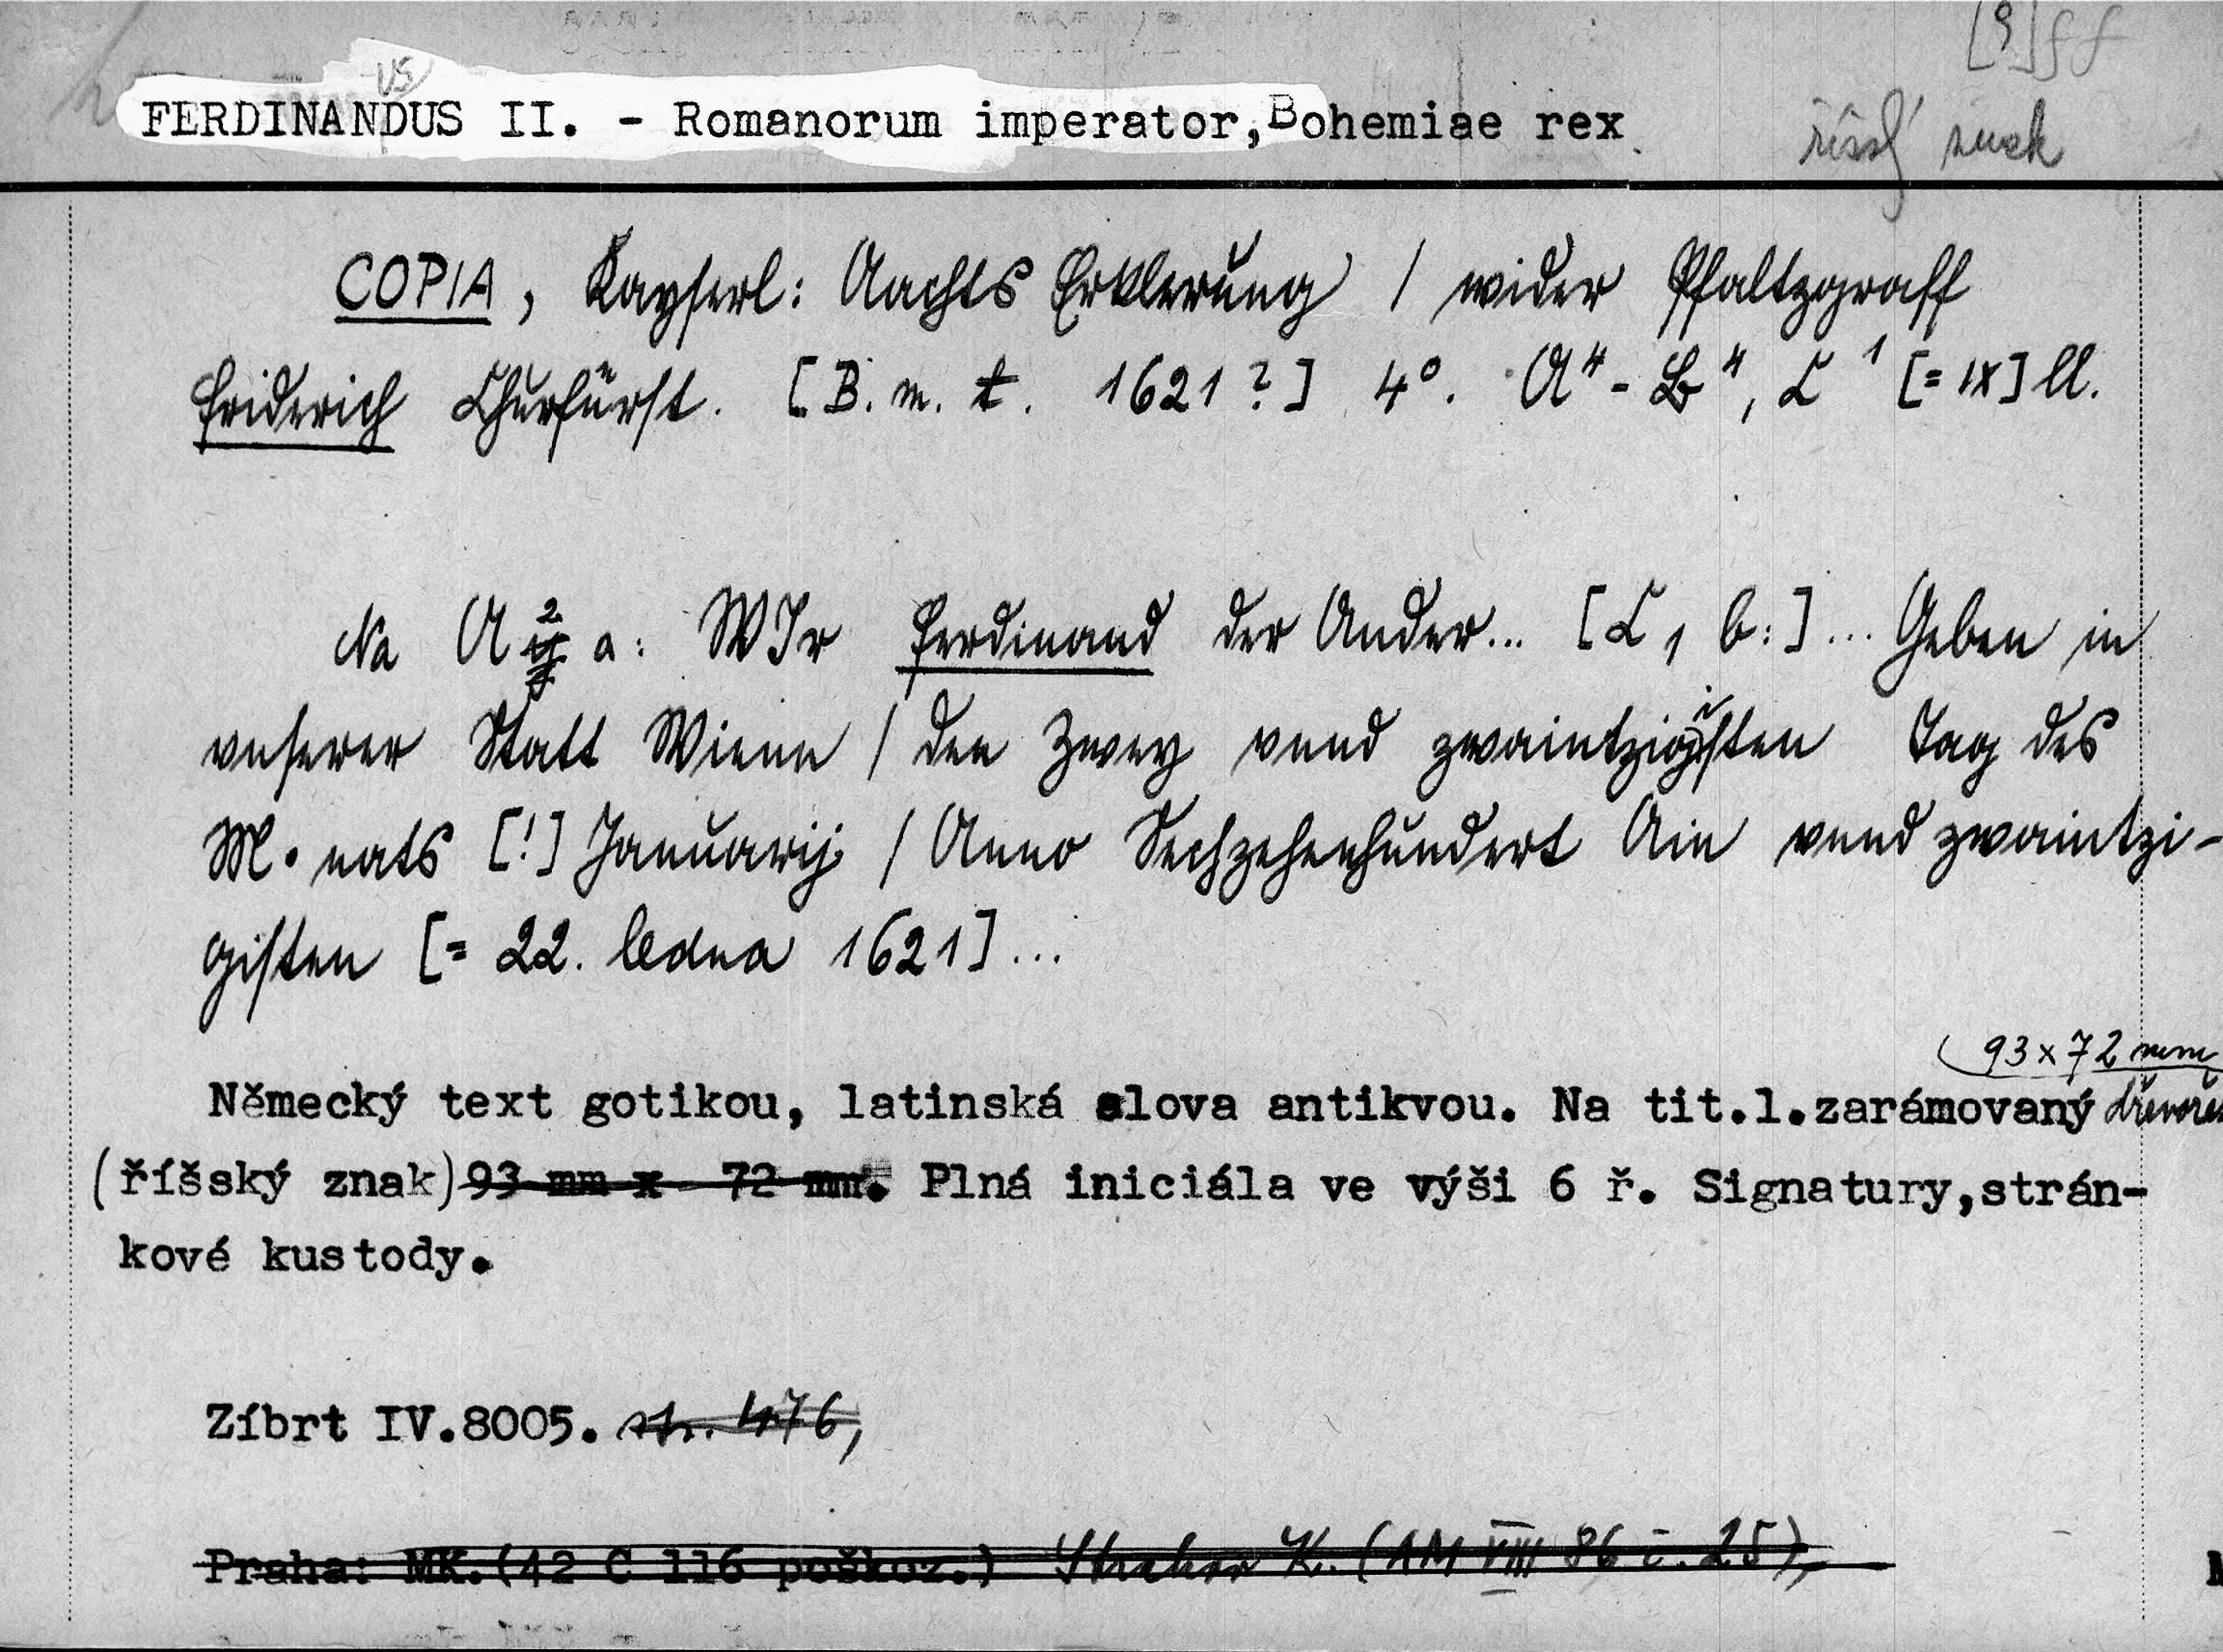 [9]ff
FERDINANDUS II. - Romanorum imperator, Bohemiae rex
říšský znak
COPIA, Kayserl: Aachts Erklerung / wider Pfaltzgraff
Friderich Churfürst. [B. m. t. 1621?] 4°. A⁴-B⁴, C¹ [= IX] ll.
Na A 2 a: WIr Ferdinand der Ander... [C 1 b:]... Geben in
vnserer Statt Wienn / den Zwey vnnd zwaintzigisten Tag des
M•nats [!] Januarij / Anno Sechzehenhundert Ain vnnd zwaintzi-
gisten [= 22. ledna 1621]...
(93 x 72 mm
Německý text gotikou, latinská slova antikvou. Na tit.l.zarámovaný dřevořez
(říšský znak) 93 mm x 72 mm. Plná iniciála ve výši 6 ř. Signatury,strán-
kové kustody.
Zíbrt IV.8005. str. 476,
Praha: MK.(42 C 116 poškoz.) Strahov K. (AM VIII 86 č. 25),